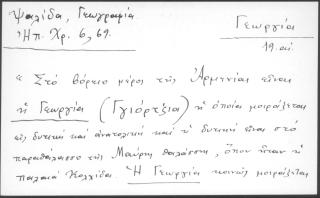 Ψαλίδα, Γεωγραφία
Ἠπ. Χρ. 6, 69.
Γεωργία
19. αἰ.
« Στὸ βόρειο μέρος τῆς Ἀρμενίας εἶναι
ἡ Γεωργία (Γγιόρτζια) ἡ ὁποία μοιράζεται
εἰς δυτικὴ καὶ ἀνατολικὴ καὶ ἡ δυτικὴ εἶναι στὸ
παραθάλασσο τῆς Μαύρης θαλάσσης, ὅπου ἦταν ἡ
παλαιὰ Κολχίδα. Ἡ Γεωργία κοινῶς μοιράζεται